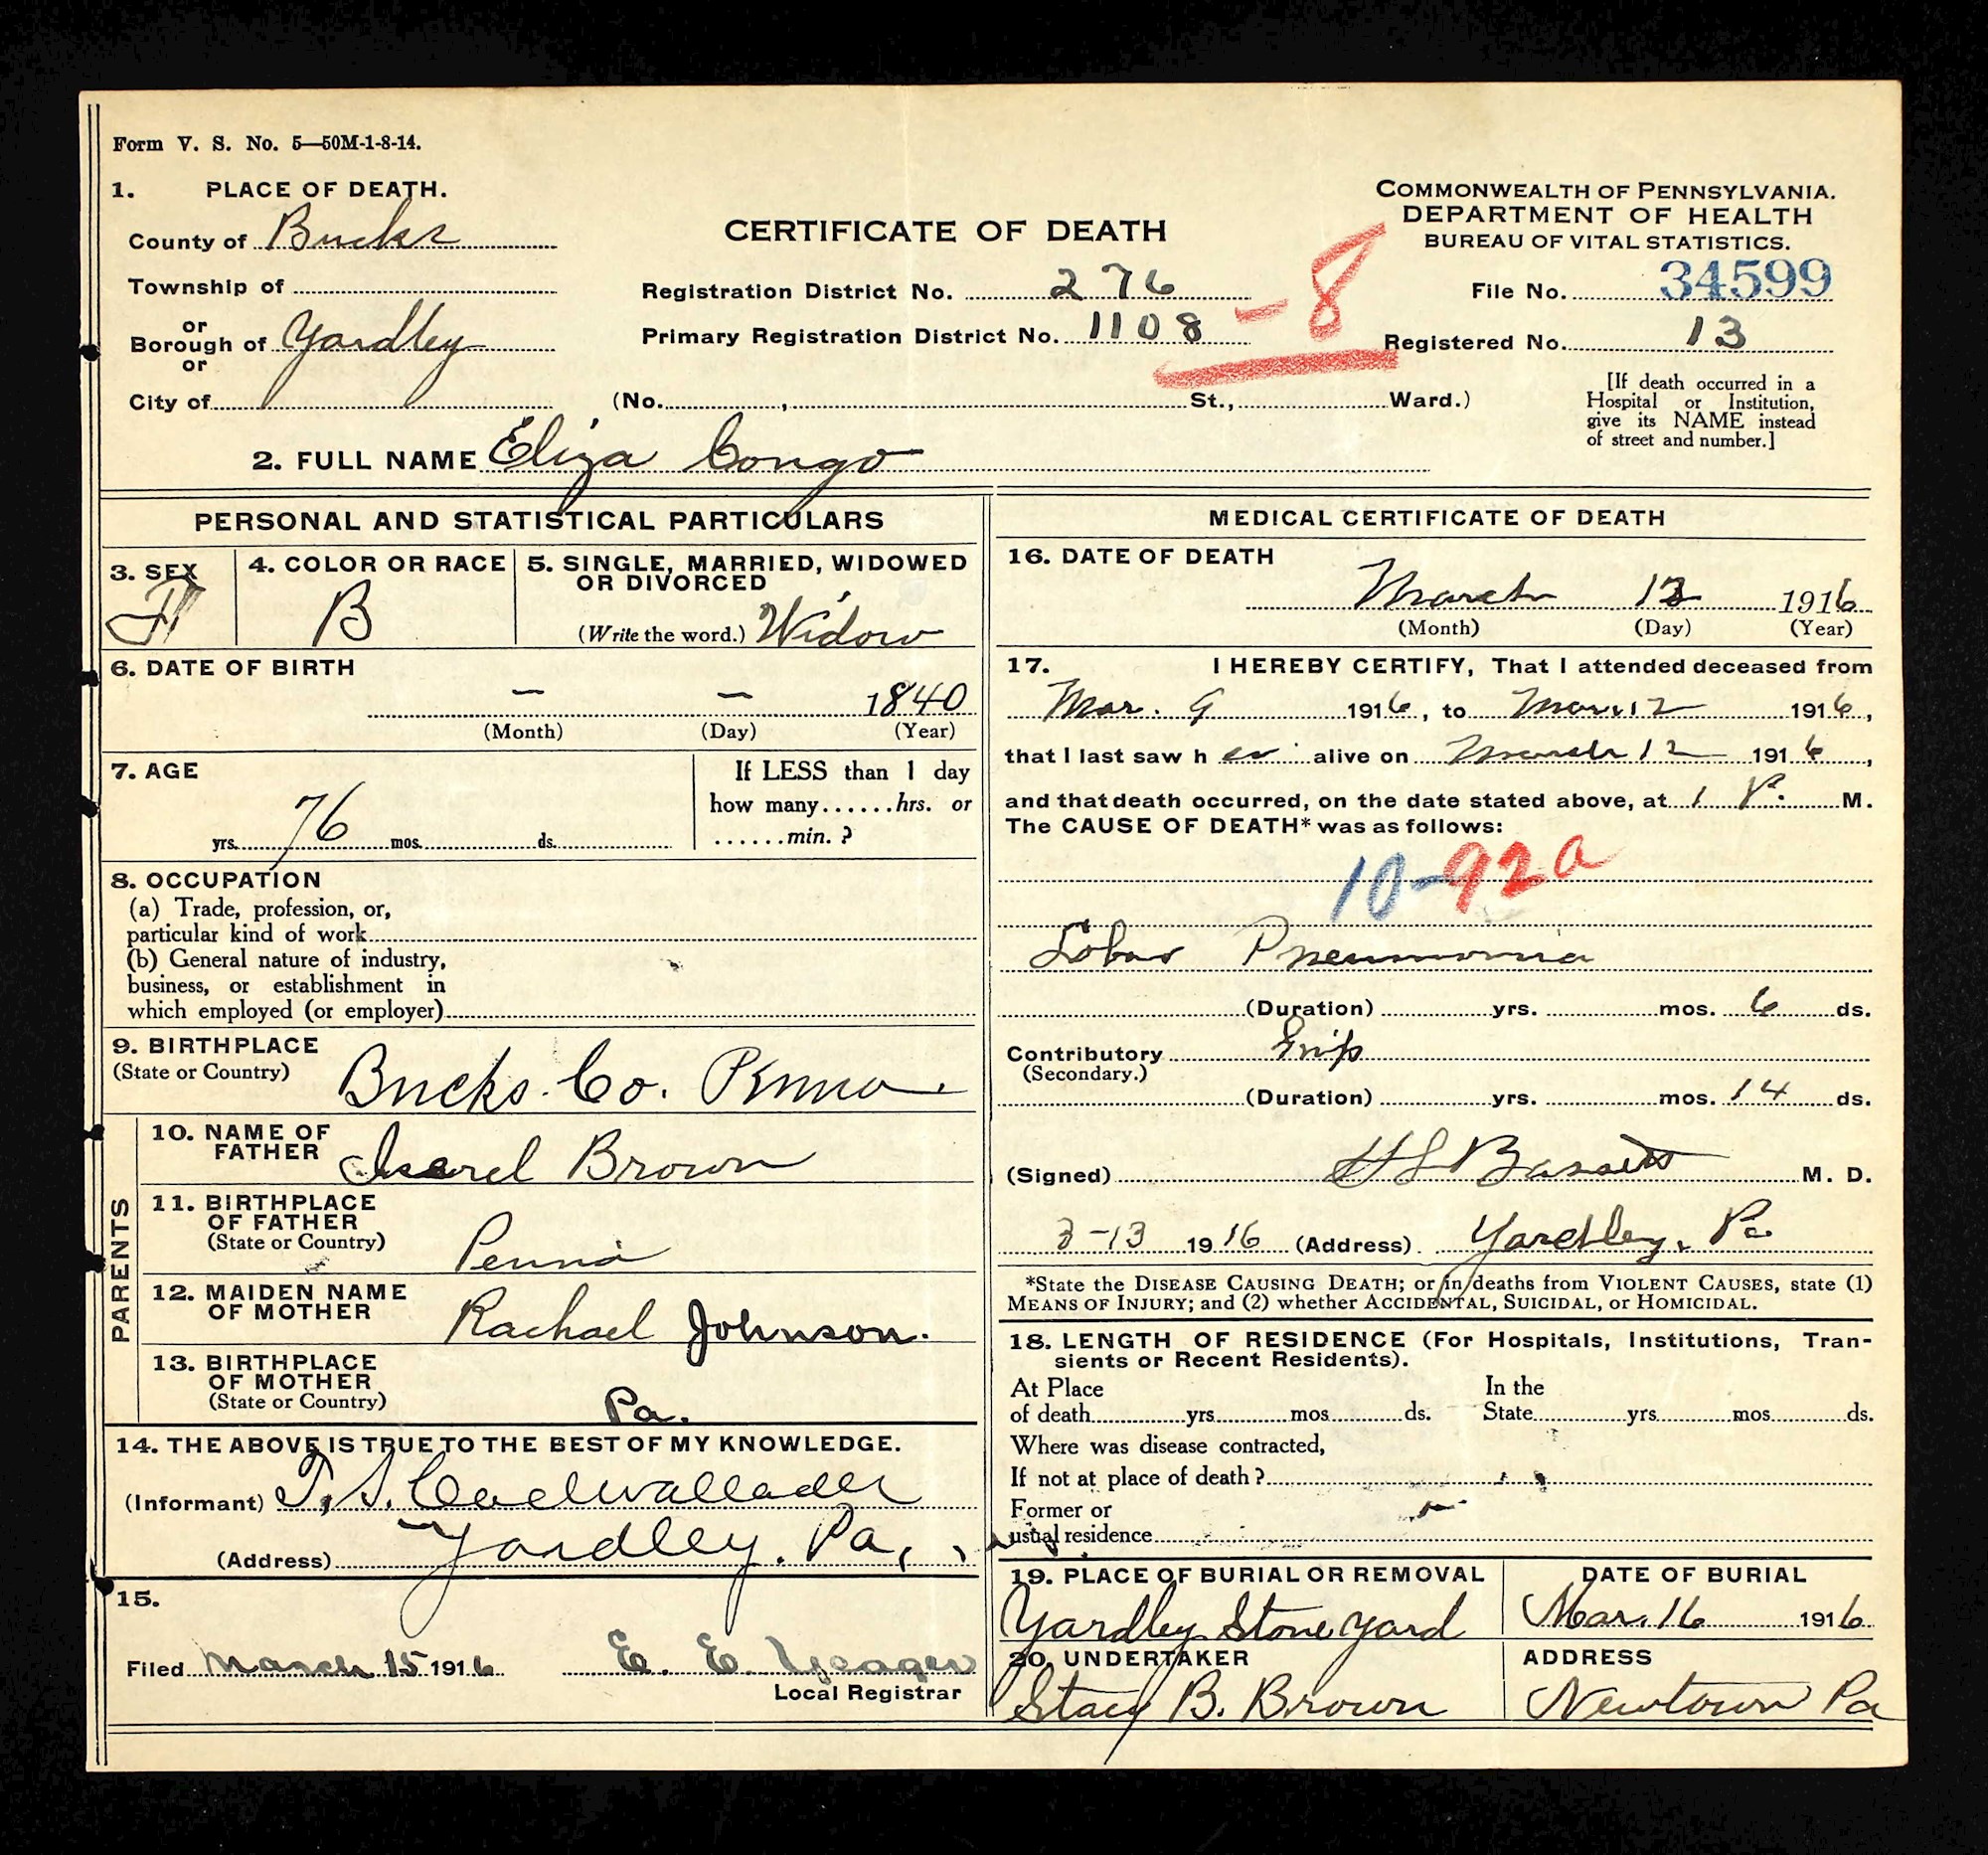 Form V. S. No. 5—50M-1-8-14.
1. PLACE OF DEATH.
County of Bucks
Township of
or
Borough of Yardley
or
City of
CERTIFICATE OF DEATH
Registration District No. 276
Primary Registration District No. 1108 -8
(No. , St., Ward.)
COMMONWEALTH OF PENNSYLVANIA.
DEPARTMENT OF HEALTH
BUREAU OF VITAL STATISTICS.
File No. 34599
Registered No. 13
[If death occurred in a
Hospital or Institution,
give its NAME instead
of street and number.]
2. FULL NAME Eliza Congo
PERSONAL AND STATISTICAL PARTICULARS
3. SEX
F
4. COLOR OR RACE
B
5. SINGLE, MARRIED, WIDOWED
OR DIVORCED
(Write the word.) Widow
6. DATE OF BIRTH
— — 1840
(Month) (Day) (Year)
7. AGE
yrs. 76 mos. ds.
If LESS than 1 day
how many......hrs. or
......min. ?
8. OCCUPATION
(a) Trade, profession, or,
particular kind of work
(b) General nature of industry,
business, or establishment in
which employed (or employer)
9. BIRTHPLACE
(State or Country)
Bucks. Co. Penna.
PARENTS
10. NAME OF
FATHER
Isarel Brown
11. BIRTHPLACE
OF FATHER
(State or Country)
Penna
12. MAIDEN NAME
OF MOTHER
Rachael Johnson.
13. BIRTHPLACE
OF MOTHER
(State or Country)
Pa.
14. THE ABOVE IS TRUE TO THE BEST OF MY KNOWLEDGE.
(Informant) T. S. Cadwallader
(Address) Yardley. Pa,
15.
Filed March 15 1916 E. E. Yeager
Local Registrar
MEDICAL CERTIFICATE OF DEATH
16. DATE OF DEATH
March 1916
(Month) (Day) (Year)
17. I HEREBY CERTIFY, That I attended deceased from
Mar. 9 1916, to Mar. 12 1916,
that I last saw h er alive on March 12 1916,
and that death occurred, on the date stated above, at 1 P. M.
The CAUSE OF DEATH* was as follows:
10-92a
Lobar Pneumonia
(Duration) yrs. mos. 6 ds.
Contributory Grip
(Secondary.)
(Duration) yrs. mos. 14 ds.
(Signed) Bassett M. D.
3-13 1916 (Address) Yardley, Pa
*State the DISEASE CAUSING DEATH; or in deaths from VIOLENT CAUSES, state (1)
MEANS OF INJURY; and (2) whether ACCIDENTAL, SUICIDAL, or HOMICIDAL.
18. LENGTH OF RESIDENCE (For Hospitals, Institutions, Tran-
sients or Recent Residents).
At Place
of death yrs mos ds.
In the
State yrs mos ds.
Where was disease contracted,
If not at place of death?
Former or
usual residence
19. PLACE OF BURIAL OR REMOVAL
Yardley Stone yard
DATE OF BURIAL
Mar. 16 1916
20. UNDERTAKER
Stacy B. Brown
ADDRESS
Newtown Pa